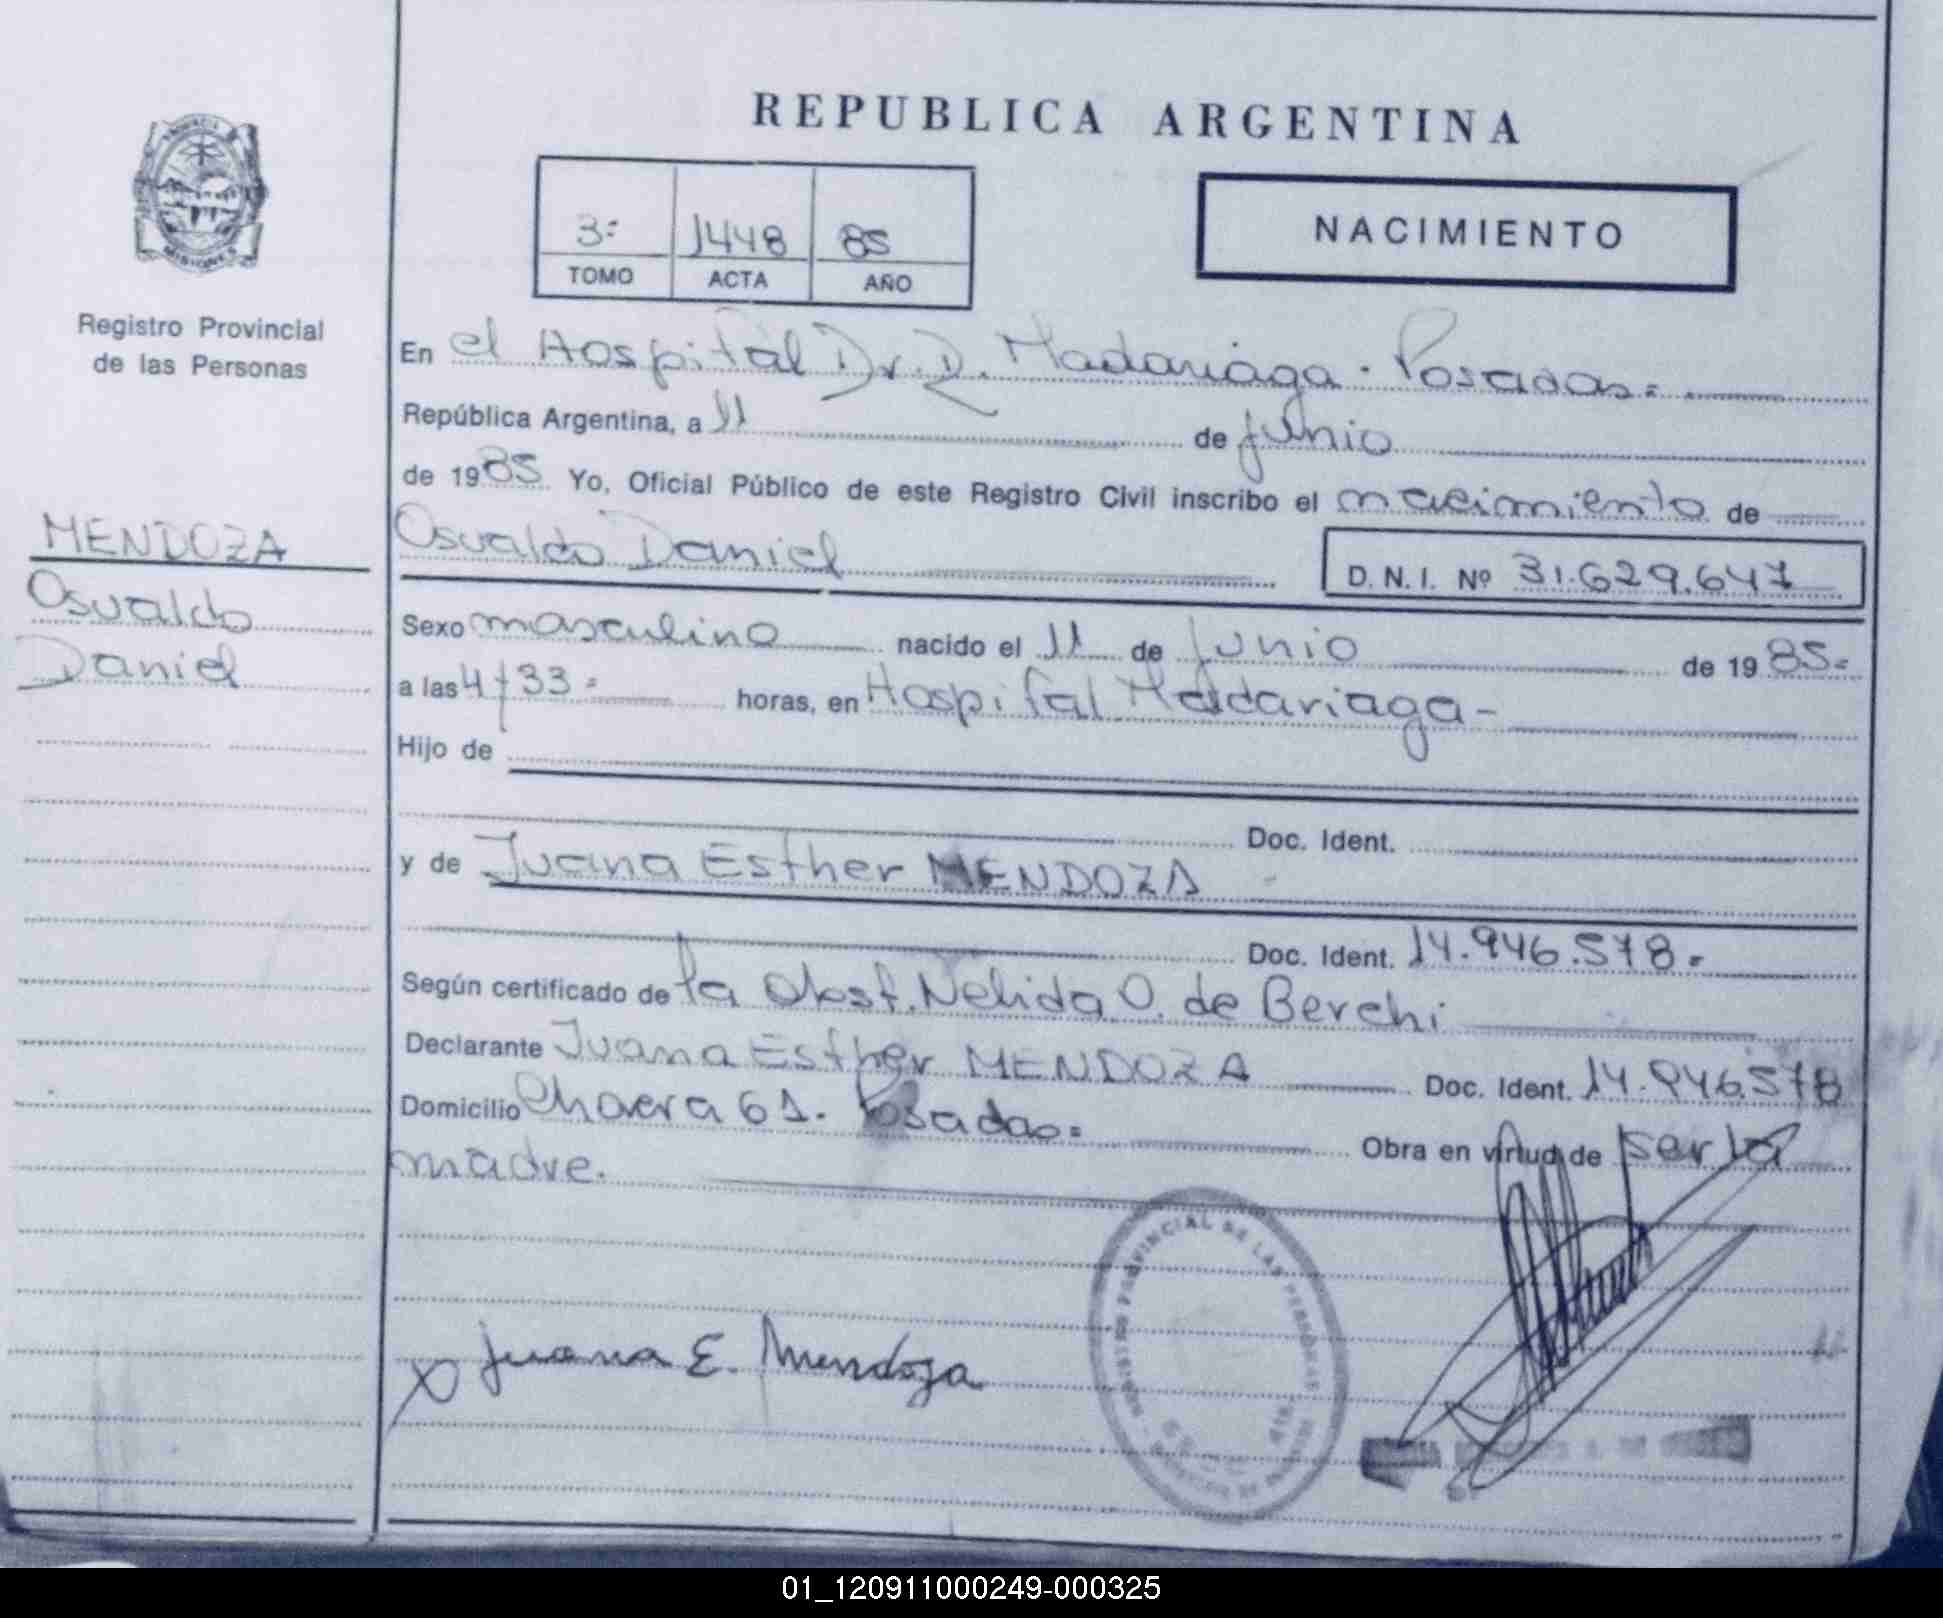 REPUBLICA ARGENTINA
PROVINCIA
MISIONES
Registro Provincial
de las Personas
3º 1448 85
TOMO ACTA AÑO
NACIMIENTO
En el Hospital Dr. R. Madariaga - Posadas =
República Argentina, a 11 de junio
de 1985 Yo, Oficial Público de este Registro Civil inscribo el nacimiento de
MENDOZA
Osvaldo
Daniel
Osvaldo Daniel D.N.I. Nº 31.629.647
Sexo masculino nacido el 11 de junio de 1985=
a las 4/33= horas, en Hospital Madariaga -
Hijo de
Doc. Ident.
y de Juana Esther MENDOZA
Doc. Ident. 14.946.578.
Según certificado de la Obst. Nelida O. de Berchi
Declarante Juana Esther MENDOZA Doc. Ident. 14.946.578
Domicilio Chacra 61. Posadas= Obra en virtud de ser la
madre.
REGISTRO PROVINCIAL DE LAS PERSONAS
x Juana E. Mendoza
01_120911000249-000325